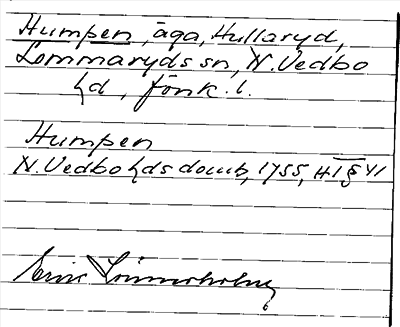 Humpen, äga, Hullaryd,
Lommaryds sn, N. Vedbo
hd, Jönk. l.
Humpen
N. Vedbo hds domb, 1755, HI § 41